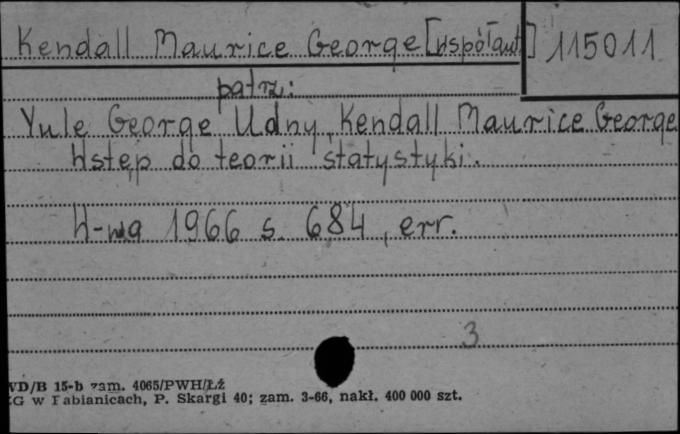 Kendall Maurice George [współaut.] 115011
patrz:
Yule George Udny, Kendall Maurice George
Wstęp do teorii statystyki.
W-wa 1966 s. 684, err.
3
WD/B 15-b zam. 4065/PWH/Łź
ZG w Pabianicach, P. Skargi 40; zam. 3-66, nakł. 400 000 szt.